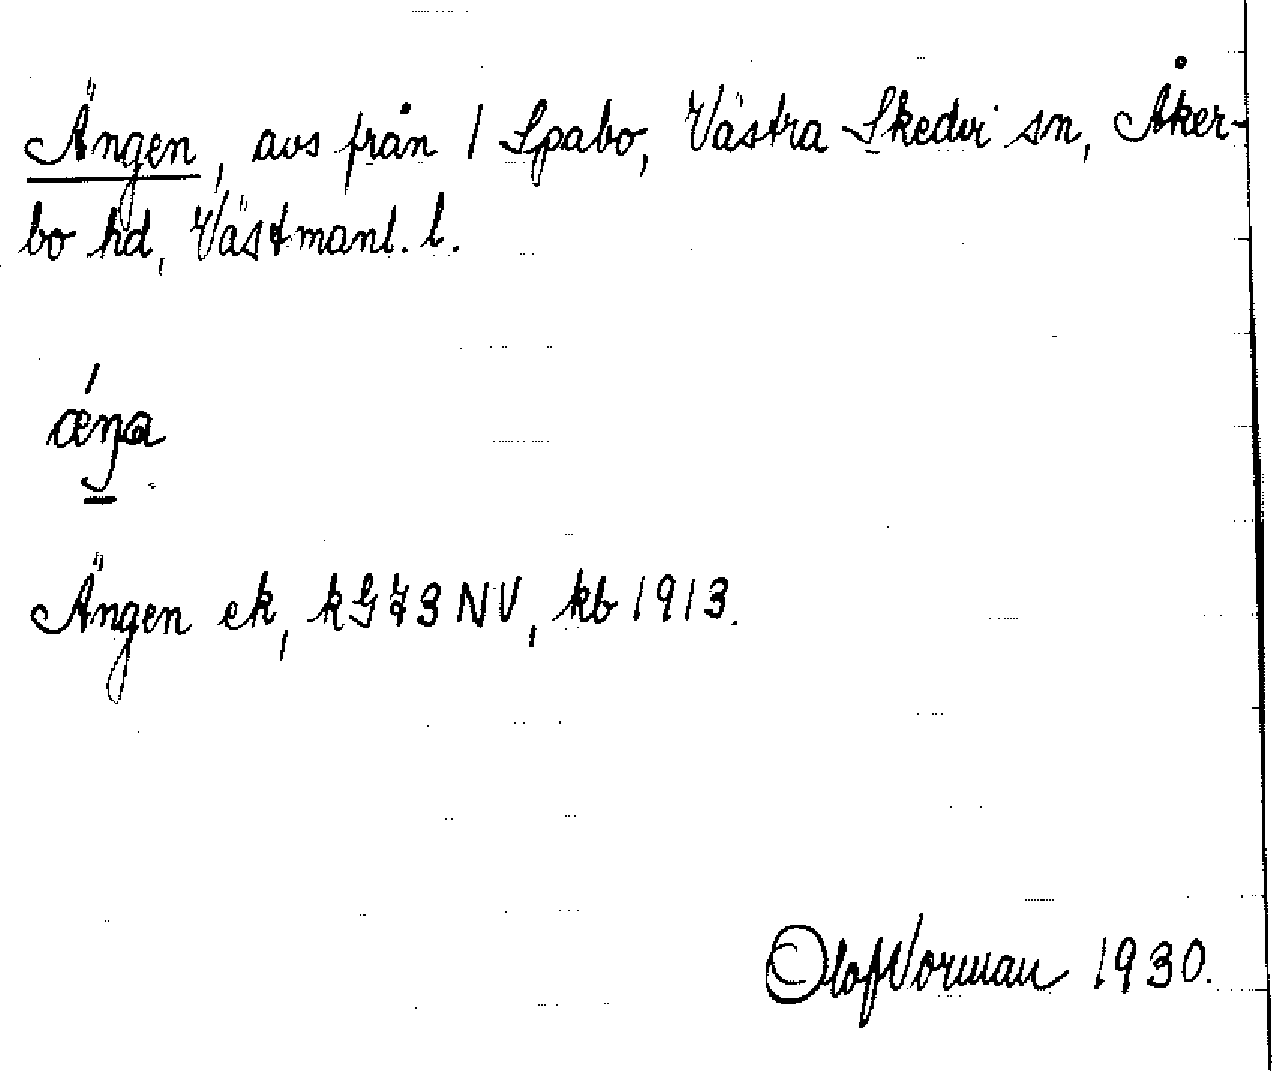 Ängen, avs från 1 Spabo, Västra Skedvi sn, Åker-
bo hd, Västmanl. l.
ǽŋa
Ängen ek, kG73NV, kb 1913.
Olof Norman 1930.